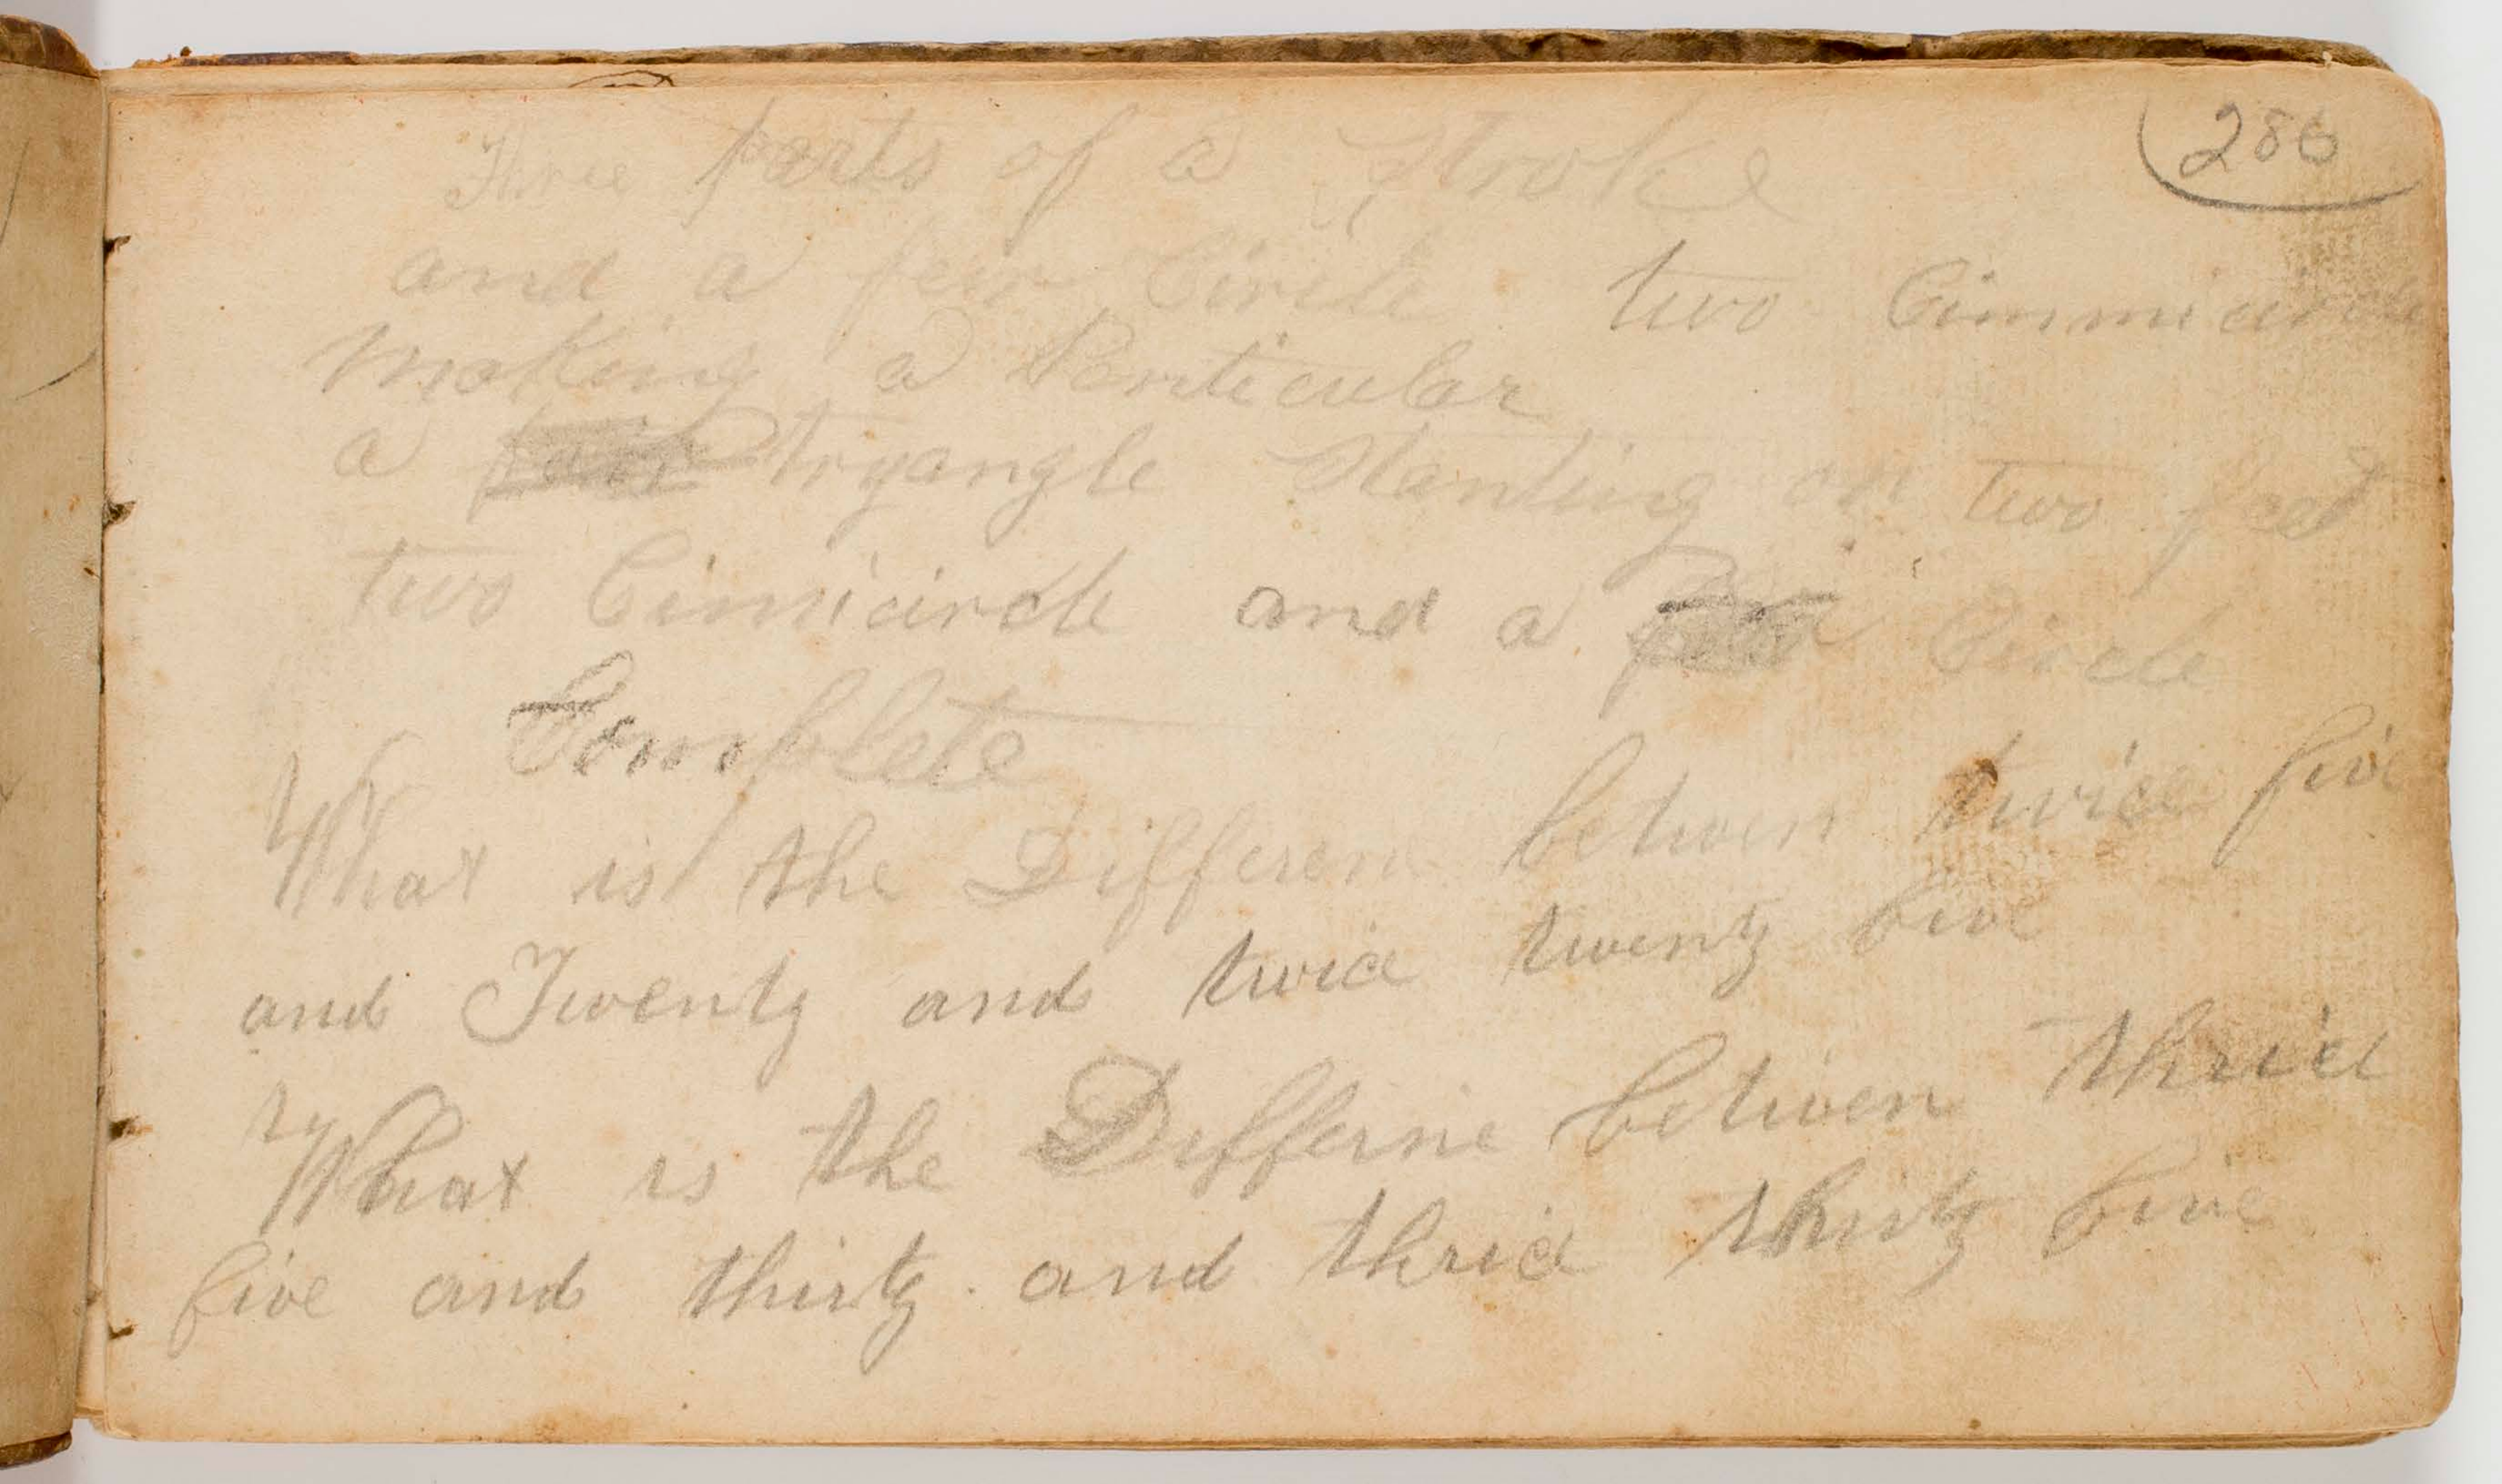 286
Three parts of a Stroke
and a few Circle two Cimmicircle
Making a Penticular
a tryangle Standing on two feet
two Cimicircle and a Circle
Complete
What is the Differen betwen twice five
and Twenty and twice twenty five
What is the Differne betwen thrice
five and thirty and thrice thirty five